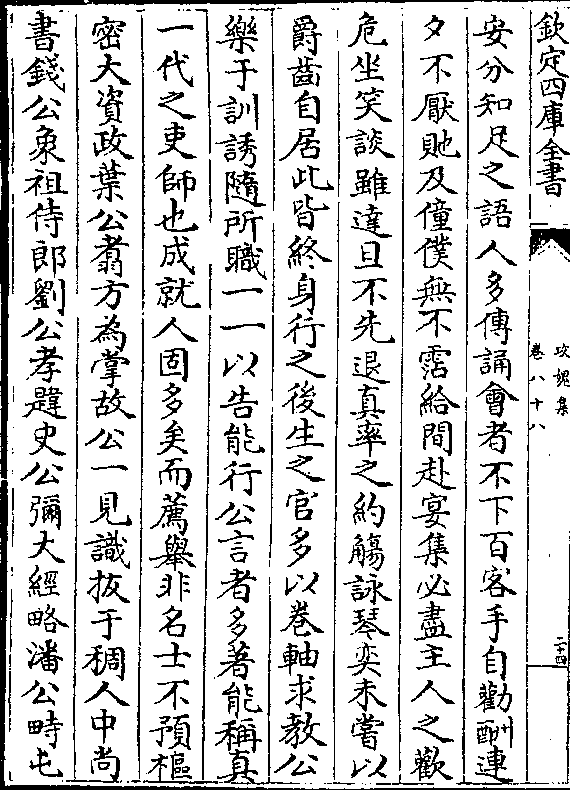 欽定四庫全書
攻媿集
卷八十八
二十四
安分知足之語人多傳誦會者不下百客手自勸酬連
夕不厭貤及僮僕無不霑給間赴宴集必盡主人之歡
危坐笑談雖達旦不先退真率之約觴詠琴奕未嘗以
爵齒自居此皆終身行之後生之官多以卷軸求教公
樂于訓誘隨所職一一以告能行公言者多著能稱真
一代之吏師也成就人固多矣而薦舉非名士不預樞
密大資政葉公翥方為掌故公一見識拔于稠人中尚
書錢公象祖侍郎劉公孝韙史公彌大經略潘公畤屯